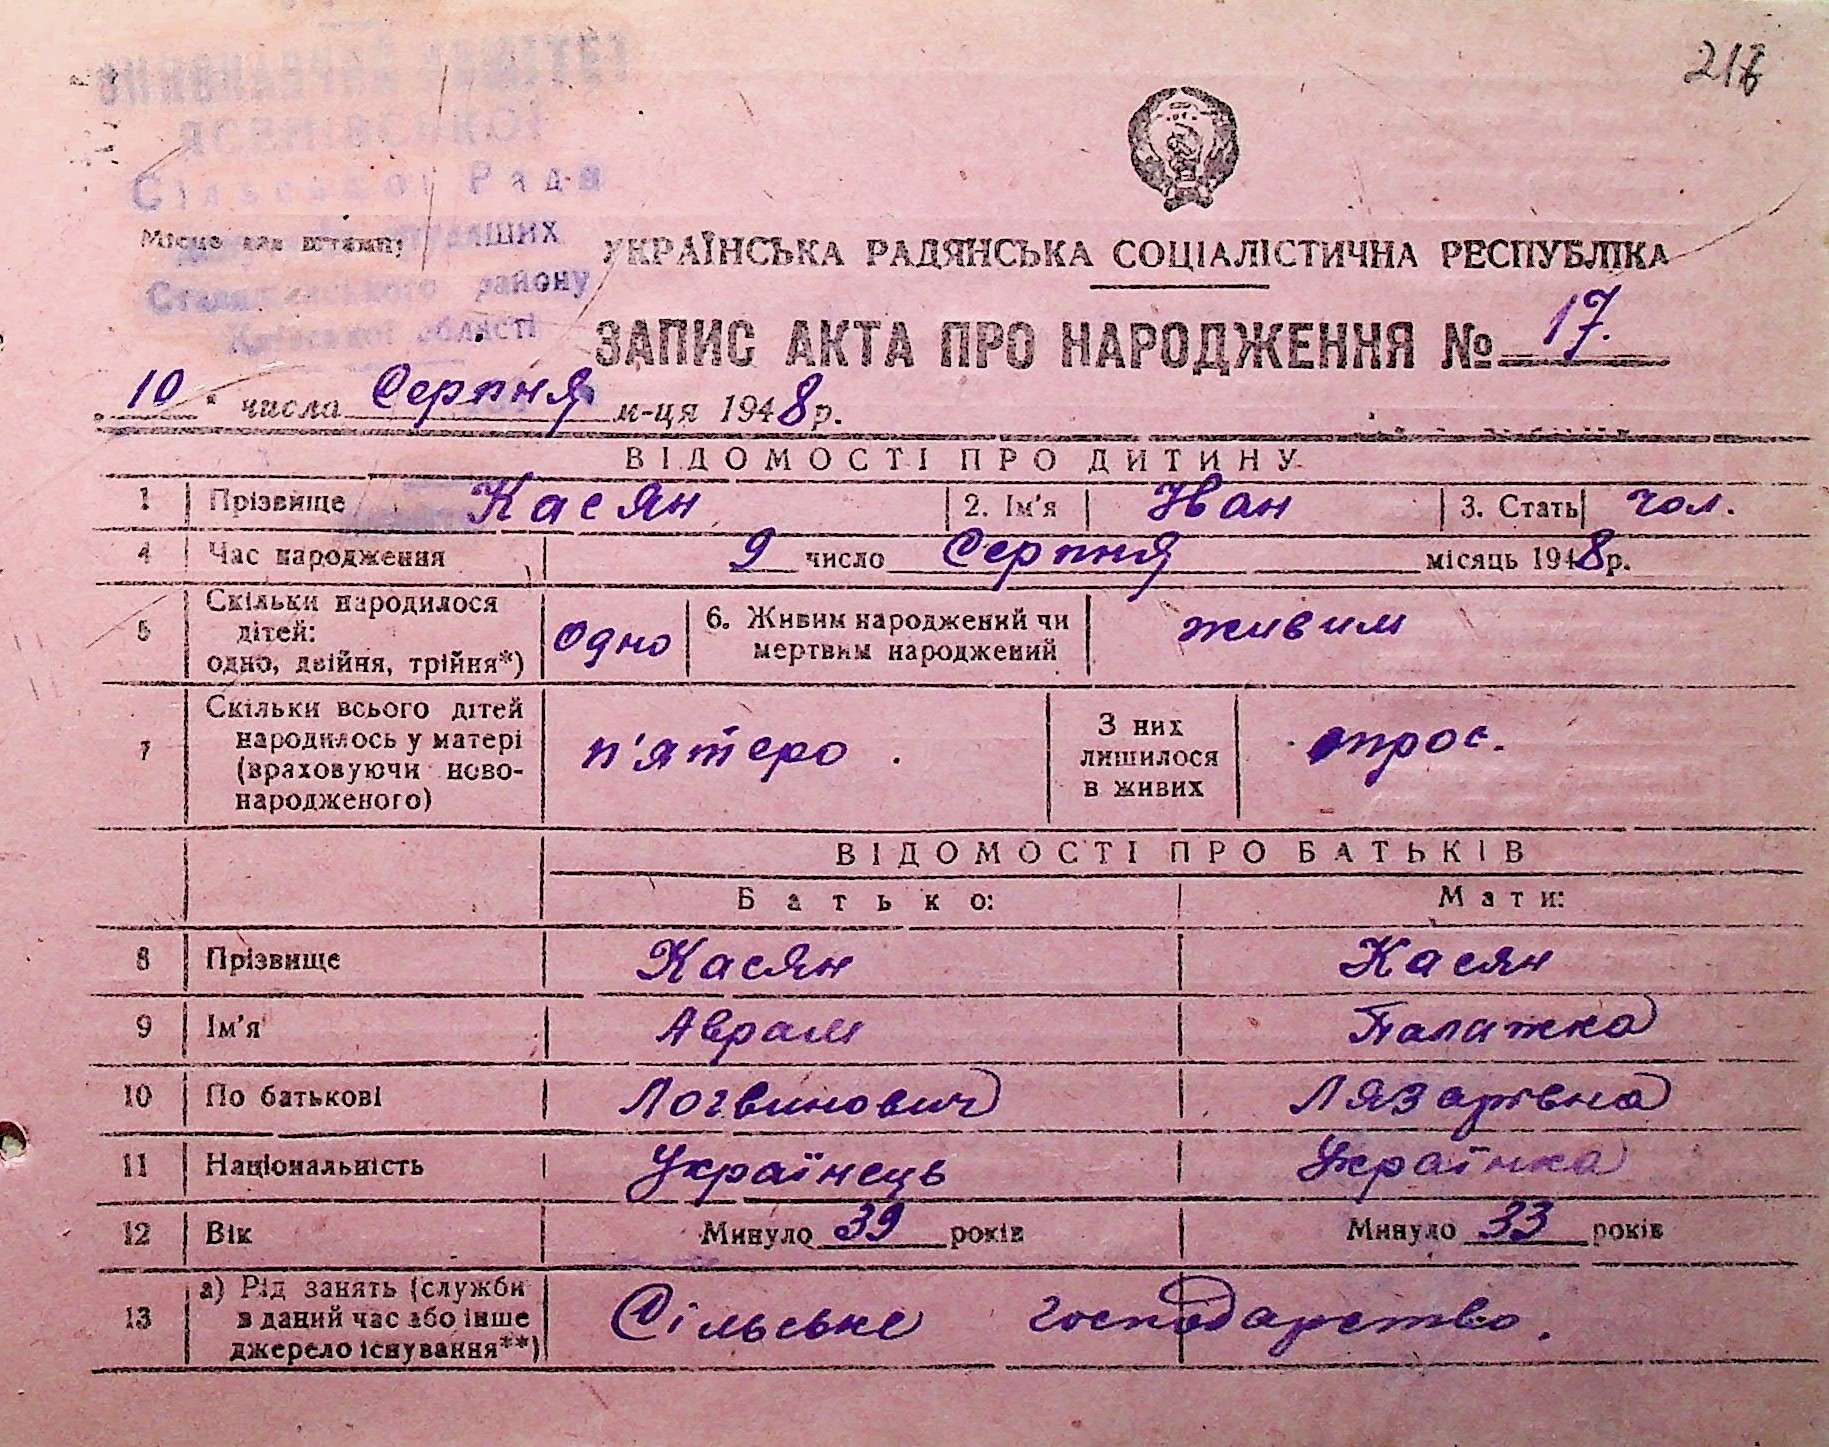 217
ЯСЕНІВСЬКОЇ
Сільської Ради
депутатів трудящих
Місце для штампу
Ставищенського району
Київської області
УКРАЇНСЬКА РАДЯНСЬКА СОЦІАЛІСТИЧНА РЕСПУБЛІКА
ЗАПИС АКТА ПРО НАРОДЖЕННЯ № 17.
"10" числа Серпня м-ця 1948 р.
ВІДОМОСТІ ПРО ДИТИНУ
1 Прізвище Касян 2. Ім'я Іван 3. Стать чол.
4 Час народження 9 число Серпня місяць 1948 р.
5 Скільки народилося дітей: одно, двійня, трійня*) одно 6. Живим народжений чи мертвим народжений живим
7 Скільки всього дітей народилось у матері (враховуючи новонародженого) п'ятеро. З них лишилося в живих троє.
ВІДОМОСТІ ПРО БАТЬКІВ
Батько: Мати:
8 Прізвище Касян Касян
9 Ім'я Аврам Палажка
10 По батькові Логвинович Лязарівна
11 Національність Українець Українка
12 Вік Минуло 39 років Минуло 33 років
13 а) Рід занять (служби в даний час або інше джерело існування**) Сільське господарство.